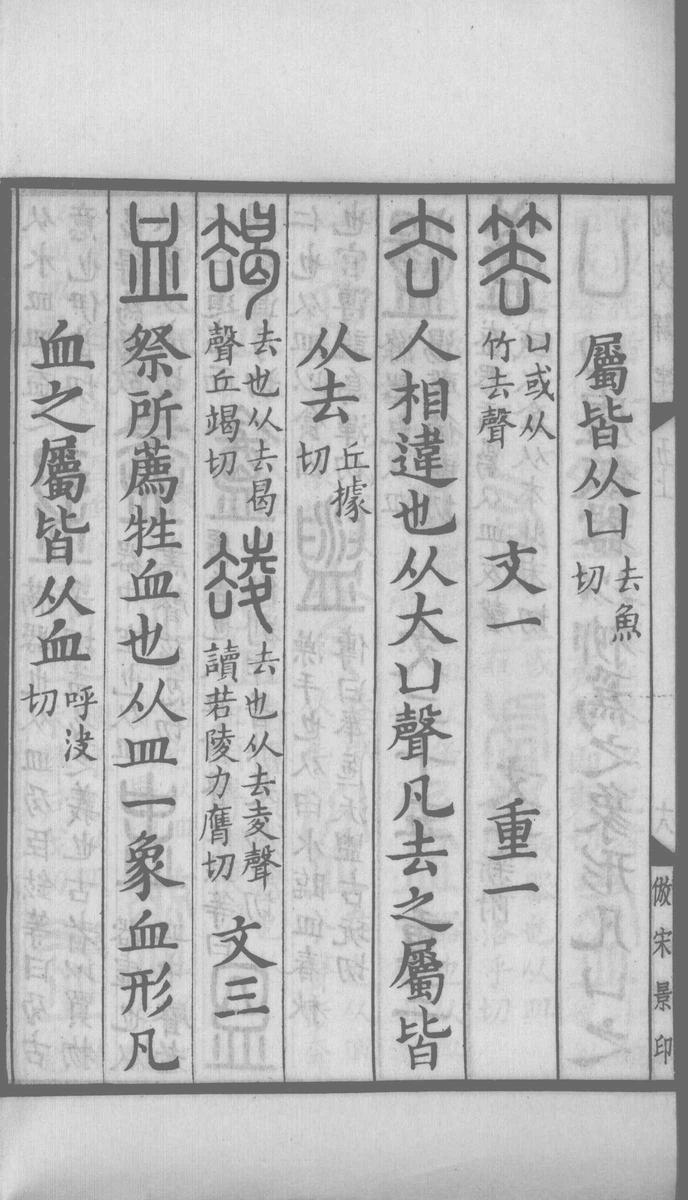 屬皆从凵去魚切
𥬔凵或从竹去聲 文一 重一
去人相違也从大凵聲凡去之屬皆
从去丘據切
朅去也从去曷聲丘竭切 𠫾去也从去夌聲讀若陵力膺切 文三
血祭所薦牲血也从皿一象血形凡
血之屬皆从血呼決切
倣宋景印